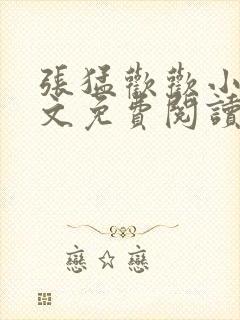 張猛歡歡小
文免費閱讀
戀☆戀